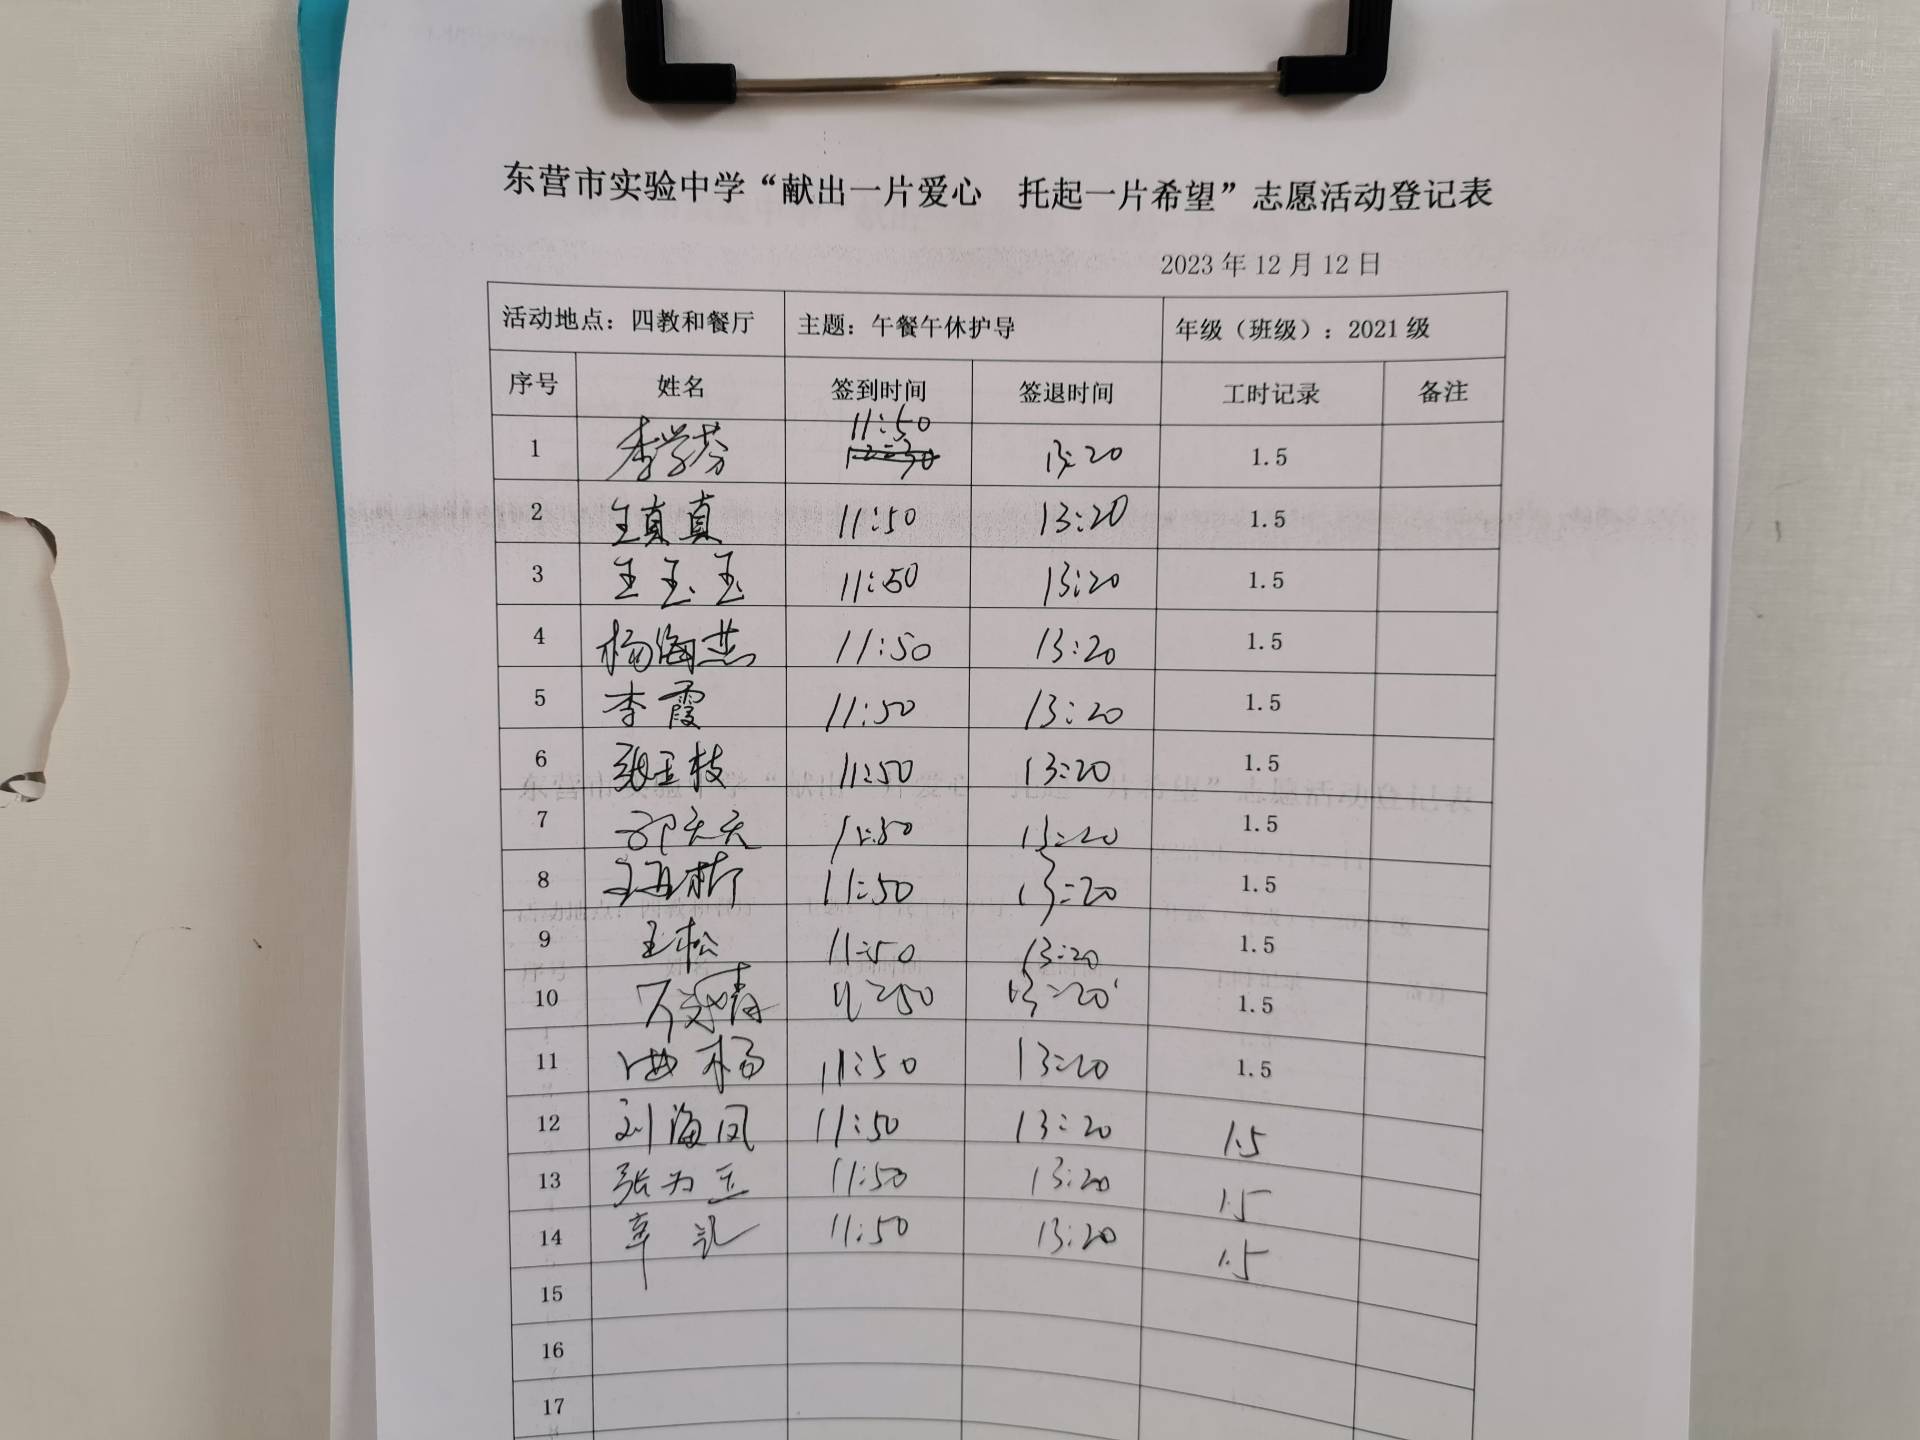 东营市实验中学“献出一片爱心 托起一片希望”志愿活动登记表
2023 年 12 月 12 日
活动地点：四教和餐厅 主题：午餐午休护导 年级（班级）：2021 级
序号 姓名 签到时间 签退时间 工时记录 备注
11:50
1 李学芬 13:20 1.5
2 王真真 11:50 13:20 1.5
3 王玉玉 11:50 13:20 1.5
4 杨海燕 11:50 13:20 1.5
5 李霞 11:50 13:20 1.5
6 张玉枝 11:50 13:20 1.5
7 天天 11:50 13:20 1.5
8 11:50 13:20 1.5
9 王松 11:50 13:20 1.5
10 11:50 13:20 1.5
11 杨 11:50 13:20 1.5
12 刘海凤 11:50 13:20 1.5
13 张为玉 11:50 13:20 1.5
14 辛凯 11:50 13:20 1.5
15
16
17